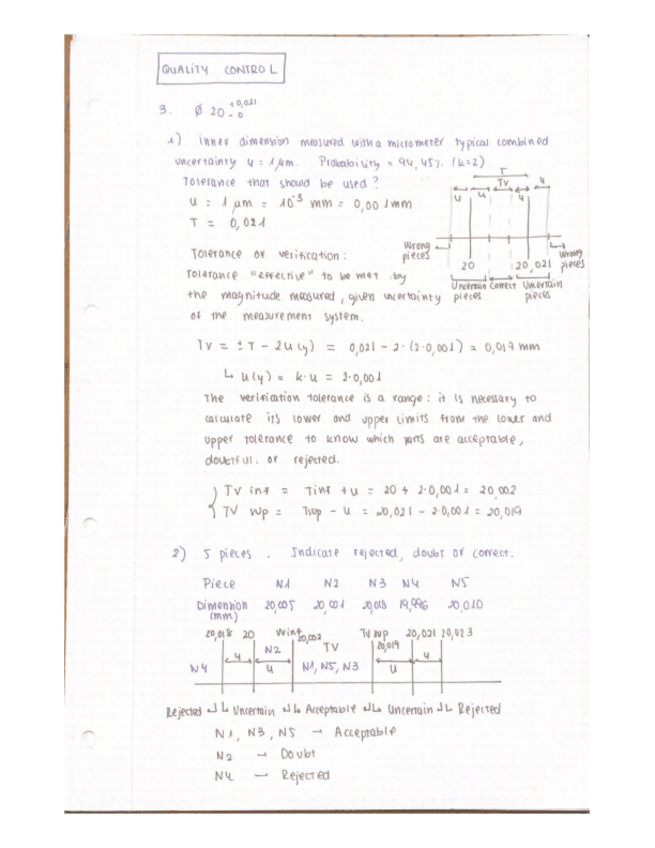 QUALITY CONTROL
3. Ø 20 +0,021 -0
1) inner dimension measured with a micrometer typical combined
uncertainty u = 1 μm. Probability = 94,45%. (k=2)
Tolerance that should be used?
u = 1 μm = 10⁻³ mm = 0,001mm
T = 0,021
T
Tv
u u u u
Wrong pieces
20
20,021
Wrong pieces
Uncertain pieces
Correct
Uncertain pieces
Tolerance of verification:
Tolerance "effective" to be met by
the magnitude measured, given uncertainty
of the measurement system.
Tv = ± T - 2U(y) = 0,021 - 2·(2·0,001) = 0,017 mm
↳ u(y) = k·u = 2·0,001
The verification tolerance is a range: it is necessary to
calculate its lower and upper limits from the lower and
upper tolerance to know which parts are acceptable,
doubtful. or rejected.
TV inf = Tinf + u = 20 + 2·0,001 = 20,002
TV sup = Tsup - u = 20,021 - 2·0,001 = 20,019
2) 5 pieces. Indicate rejected, doubt or correct.
Piece N1 N2 N3 N4 N5
Dimension (mm) 20,005 20,001 20,018 19,996 20,010
20,018 20 20,002 Tv sup 20,019 20,021 20,023
N4 u N2 u TV N1, N5, N3 u u
Rejected Uncertain Acceptable Uncertain Rejected
N1, N3, N5 → Acceptable
N2 → Doubt
N4 → Rejected